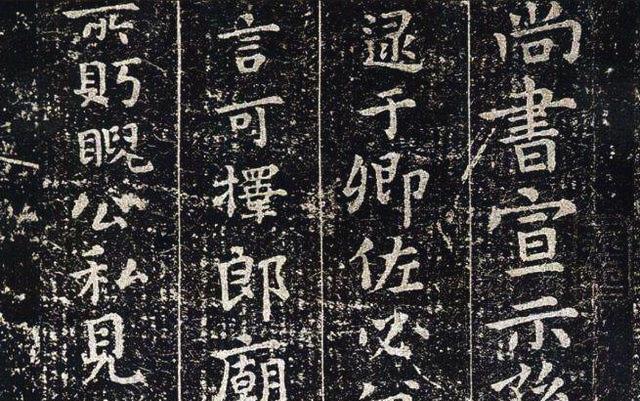 尚書宣示孫
逮于卿佐必冀
言可擇郎廟
所貺睨公私見